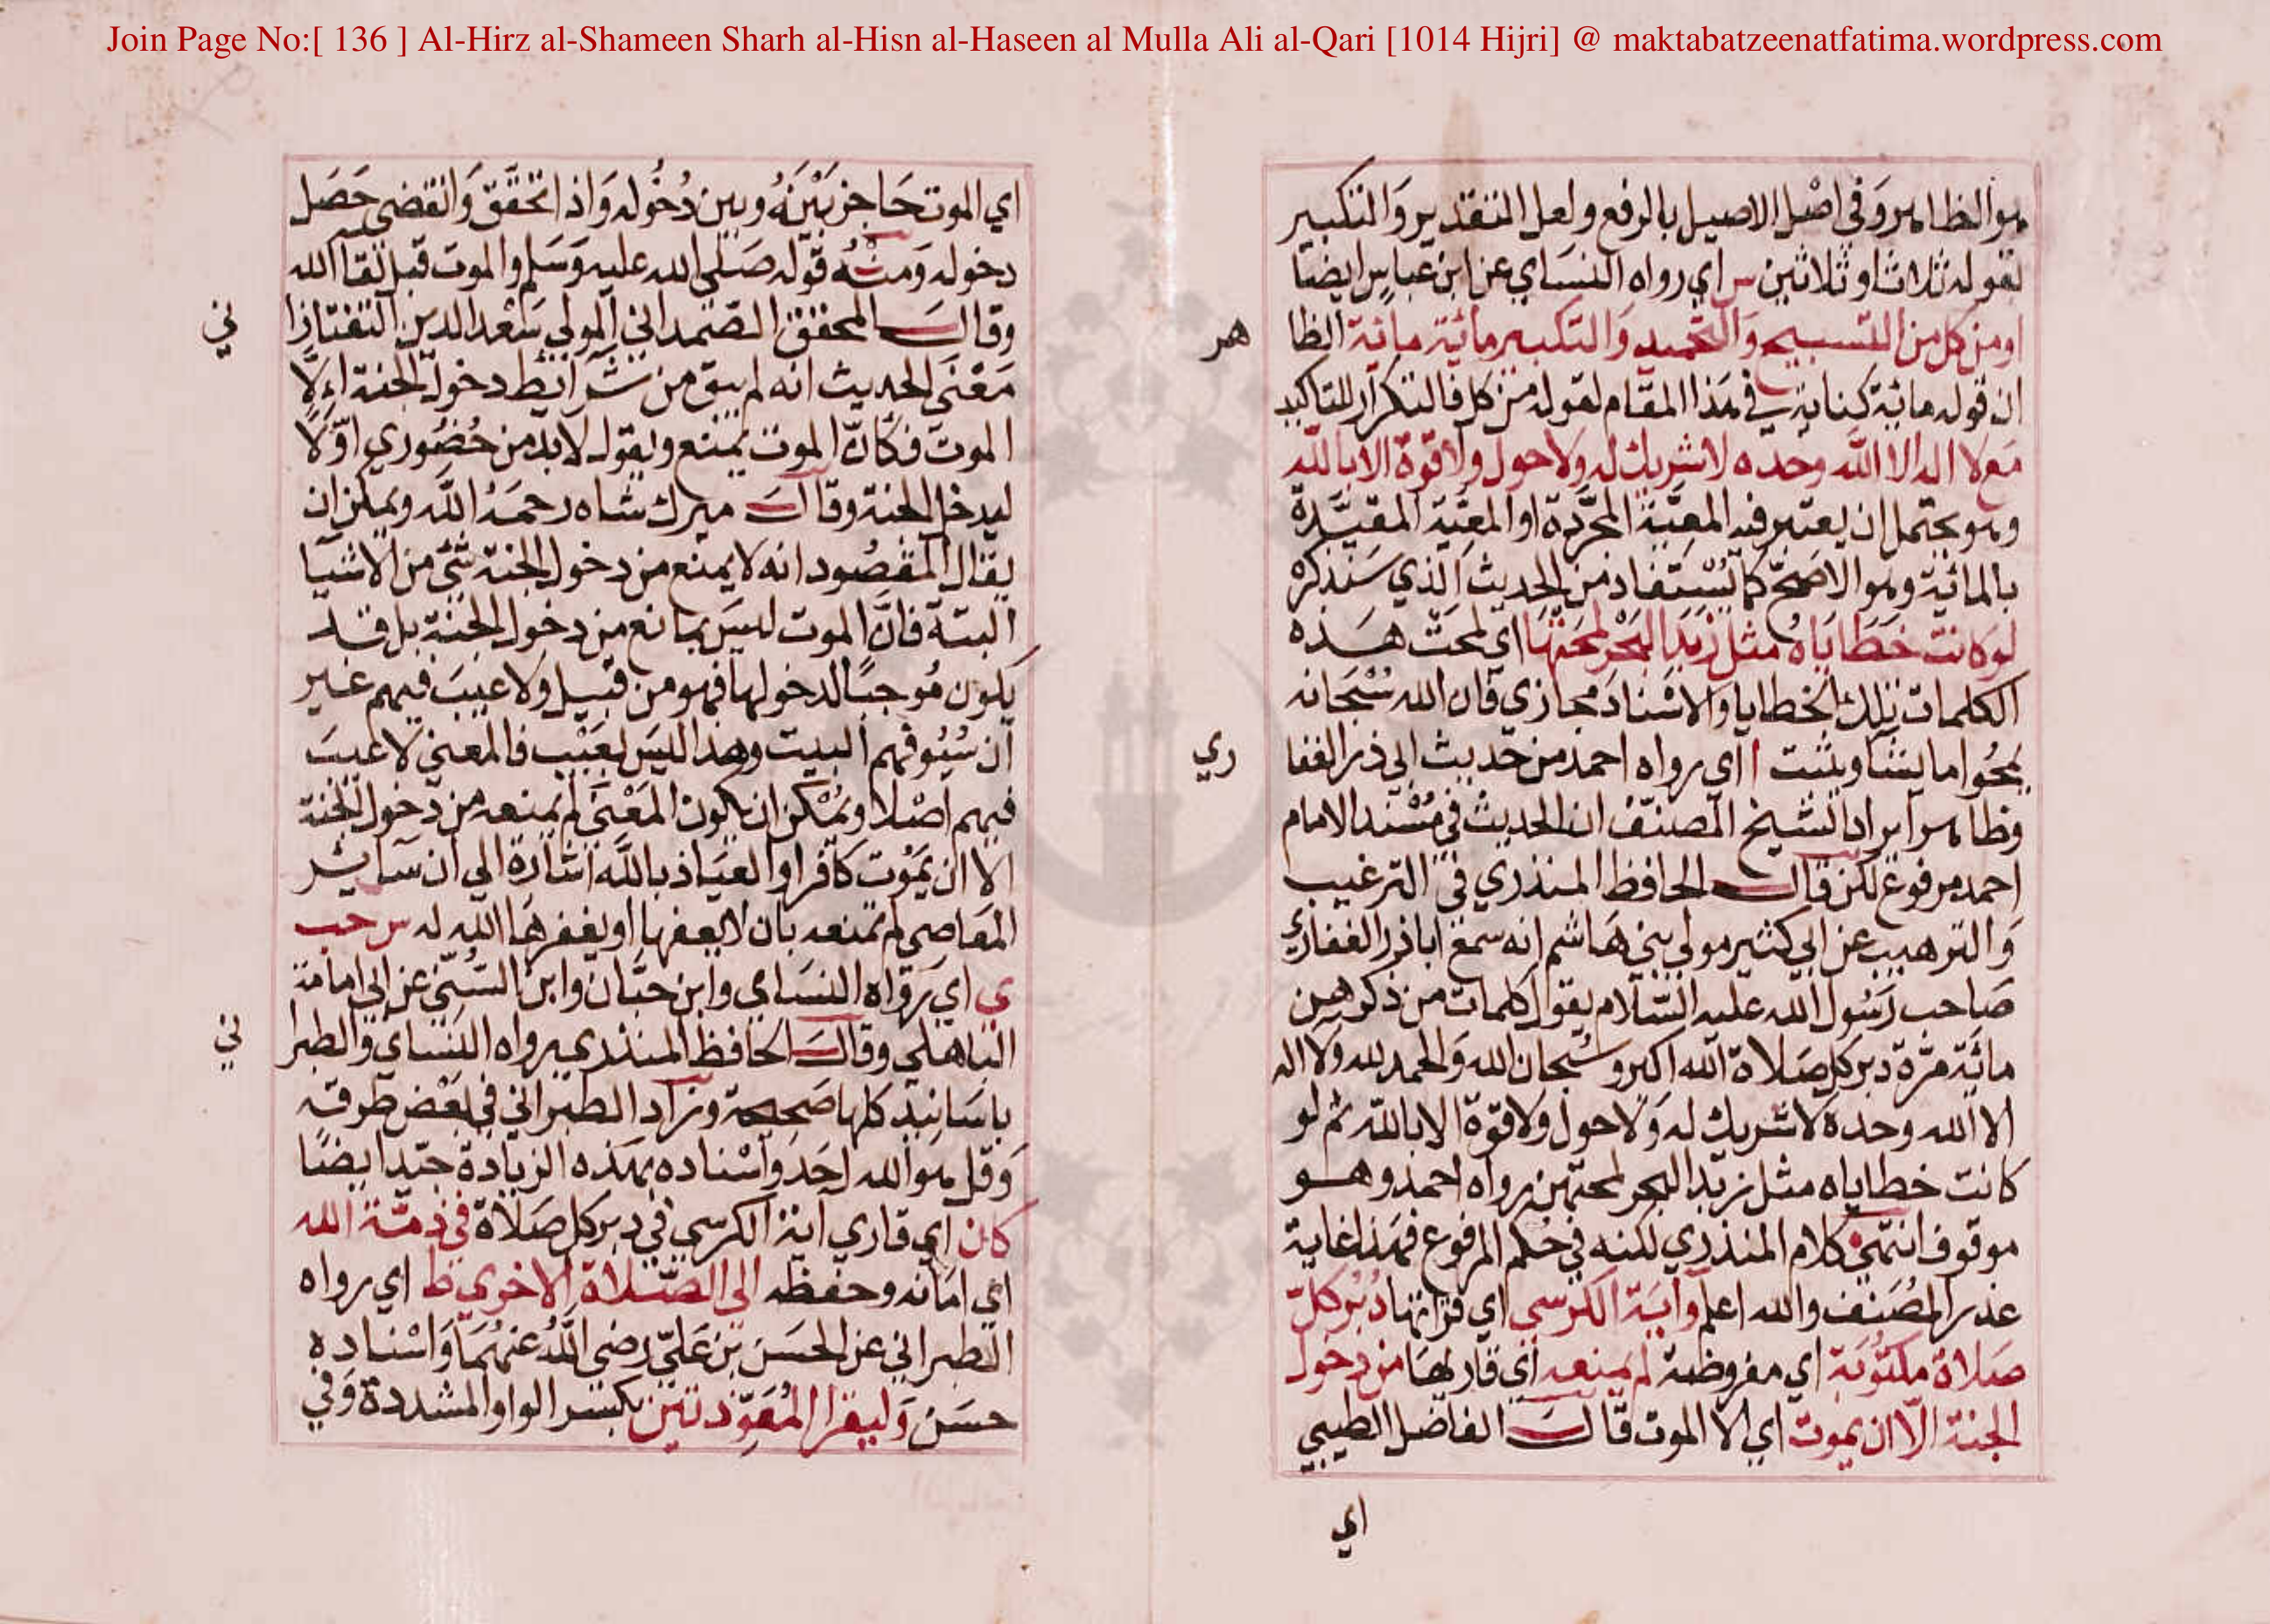 Join Page No:[ 136 ] Al-Hirz al-Shameen Sharh al-Hisn al-Haseen al Mulla Ali al-Qari [1014 Hijri] @ maktabatzeenatfatima.wordpress.com
هو الظاهر وفي اصْل الاصيل بالرفع ولعل التقدير وَالتكبير
لقوله ثلاثا وثلاثين س اي رواه النسَاي عن ابن عباسٍ ايضا
او من كل من التسبيح وَالتحميد وَالتكبير مائة مائة الظا
هر
ان قوله مائة كناية في هَذا المقام لقوله من كل فالتكرار للتاكيد
مَع لا اله الا اللّه وحده لا شريك له ولا حول ولا قوة الا باللّه
وهو يحتمل ان يعتبر فيه المعيَّة المجرَّدة او المعيَّة المقيَّدة
بالمائية وهو الاصَحّ كما يُسْتفاد من الحديث الذي سَنذكرهْ
لو كانت خَطَايَاهُ مثل زبَد البَحْر لمحَتْهَا اي لمحَتْ هذه
الكلمات تلك الخطايا وَالاسْناد مجازي قال الله سُبْحَانه
يمحُوا ما يشا ويثبت ا اي رواه احمد من حَديث ابي ذر الغفا
ري
وظاهر ايراد الشيخ المصَنّف ان الحديث في مُسْند الامام
احمد مرفوع لكن قال الحافظ المنذري في الترغيب
وَالترهيب عن ابي كثير مولي بني هَاشم انه سمعَ اباذر الغفاري
صَاحب رَسُول الله عليه السّلام يقول كلمات من ذكرهن
مائَة مَرّة دبر كل صَلاة الله اكبر وسُبْحان الله وَالحمد لله وَلا اله
الا الله وحدهْ لا شريك له وَلا حول ولا قوّة الا باللّه ثم لو
كانت خطاياه مثل زبَد البحر لمحتهن رواه احمد وهو
موقوف انتهيَ كلام المنذري لكنه في حُكم المرفوع فهَذا غاية
عذر المُصَنف والله اعلم وآيَة الكرسي اي قرَاتها دُبُر كلّ
صَلاة مكتُوبَة اي مفروضة لم يمنعه اي قاريهَا من دخول
الجنة الّا ان يموت اي الا الموت قال الفاضل الطيبي
اي
اي الموت حَاجز بَيْنَهُ وبين دُخُوله وَاذا تحقَّق وَانقضى حَصَل
دخوله وَمنْهُ قوله صَلى الله عليه وَسَلم والموت قبل لقا الله
وقال المحقق الصّمداني المولي سَعْد الدين التفتازا
ني
مَعْنَي الحديث انه لم يبق من شرَائط دخول الجنة اِلَّا
الموت فكَانَّ الموت يمنع ويقول لا بد من حُضُوري اوّلًا
ليدخل الجنة وقال ميرك شاه رحمَهُ اللَّه ويمكن ان
يقال المقصُود انه لا يمنع من دخول الجنة شَئ من الاشيا
البتة فانَّ الموت ليسَ بمانع من دخول الجنة بل قد
يكون مُوجبًا لدخولها فهو من قبيل ولا عيبَ فيهم غير
ان سُيُوفهم البيت وهذا ليسَ بعَيْب فالمعني لا عيبَ
فيهم اصْلا ويُمْكن ان يكون المَعْنَي لم يمنعه من دخول الجنة
الا ان يَمُوت كافرا والعيَاذ باللَّه اشارة الي ان سَائر
المَعَاصي لم تمنعه بان لا يعفها او يغفرهَا الله له س حب
ي اي رَوَاه النسَاي وابن حبَّان وابن السُّنّي عن ابي امامة
الباهلي وقال الحافظ المنذري رواه النسَاي والطبرا
ني
باسَانيد كلها صَحيحة وزاد الطبراني في بَعْض طرقه
وَقل هو الله احَد وَاسْناده بهَذه الزيادة جيّد ايضًا
كان اي قاري اية الكرسي في دبر كل صَلاة في ذمّة الله
اي امَانه وحفظه الي الصّلاة الاخري ط اي رواه
الطبراني عن الحسَن بن عَليّ رضي اللَّهُ عنهُمَا وَاسْناده
حسَن وَليقرا المُعَوِّذتين بكسْر الواو المشددة وَفي